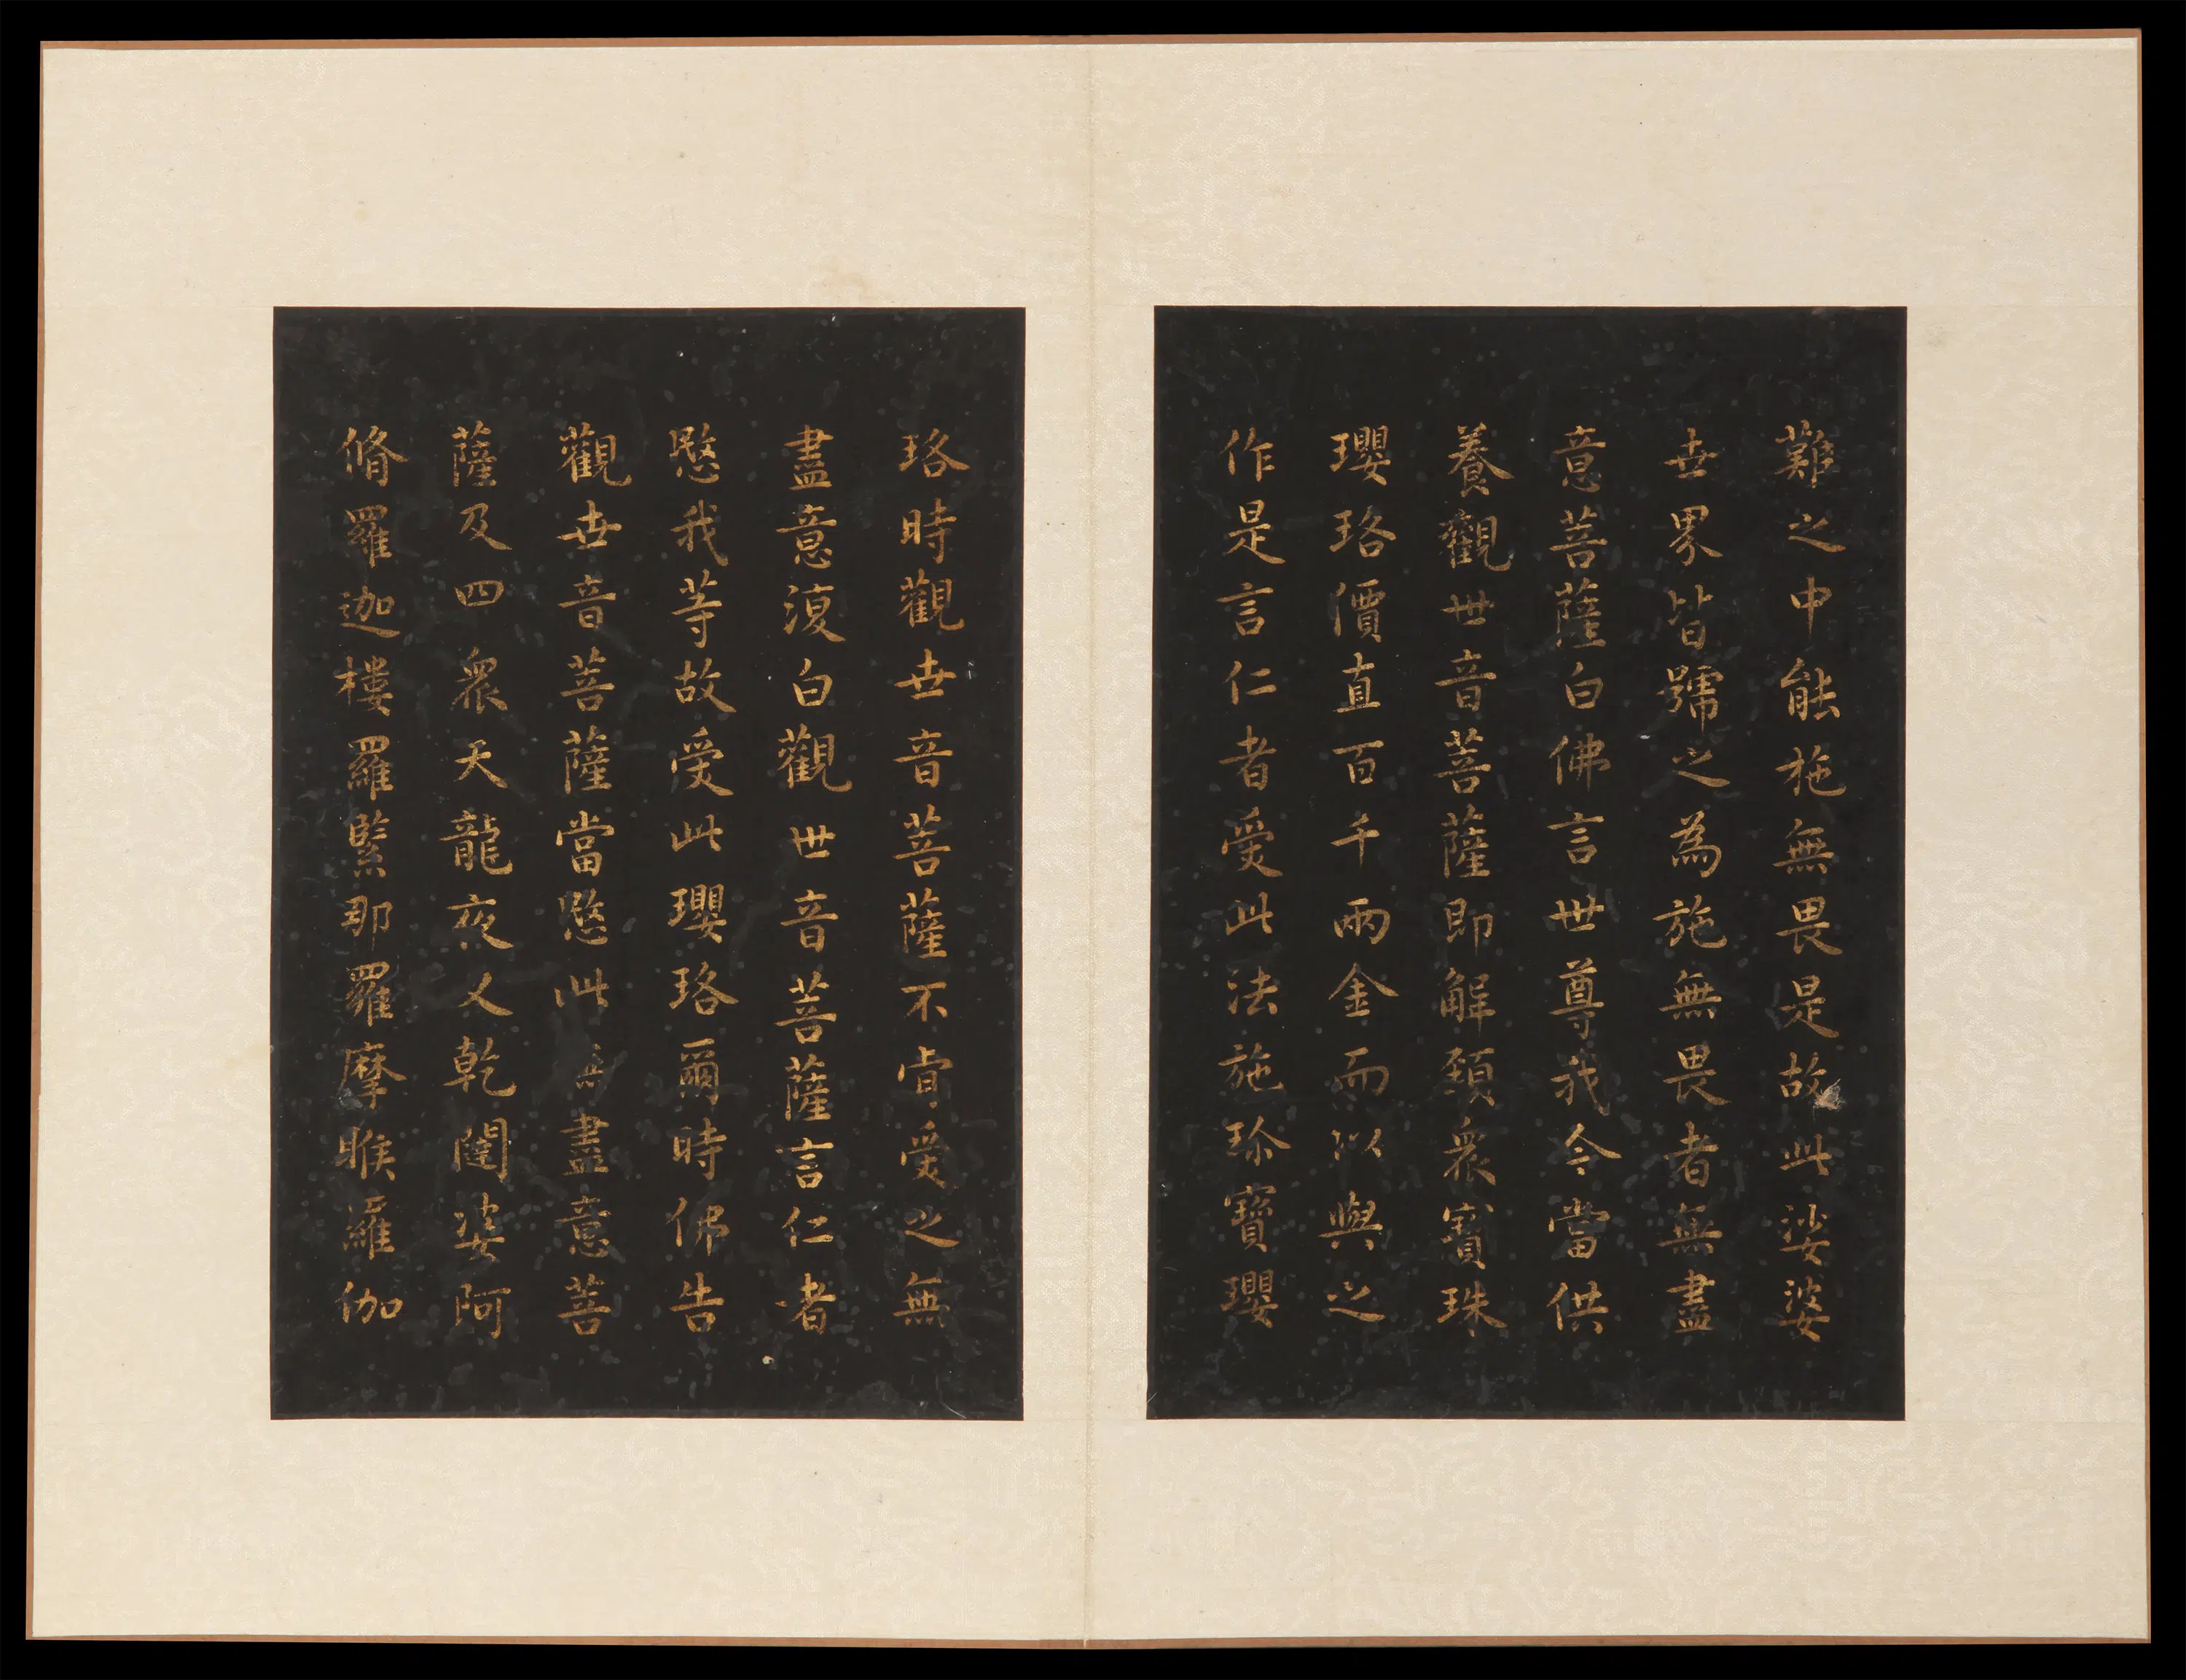 難之中能施無畏是故此娑婆
世界皆號之為施無畏者無盡
意菩薩白佛言世尊我今當供
養觀世音菩薩即解頸衆寶珠
瓔珞價直百千兩金而以與之
作是言仁者受此法施珎寶瓔
珞時觀世音菩薩不肯受之無
盡意復白觀世音菩薩言仁者
愍我等故受此瓔珞爾時佛告
觀世音菩薩當愍此無盡意菩
薩及四衆天龍夜叉乾闥婆阿
脩羅迦樓羅緊那羅摩睺羅伽